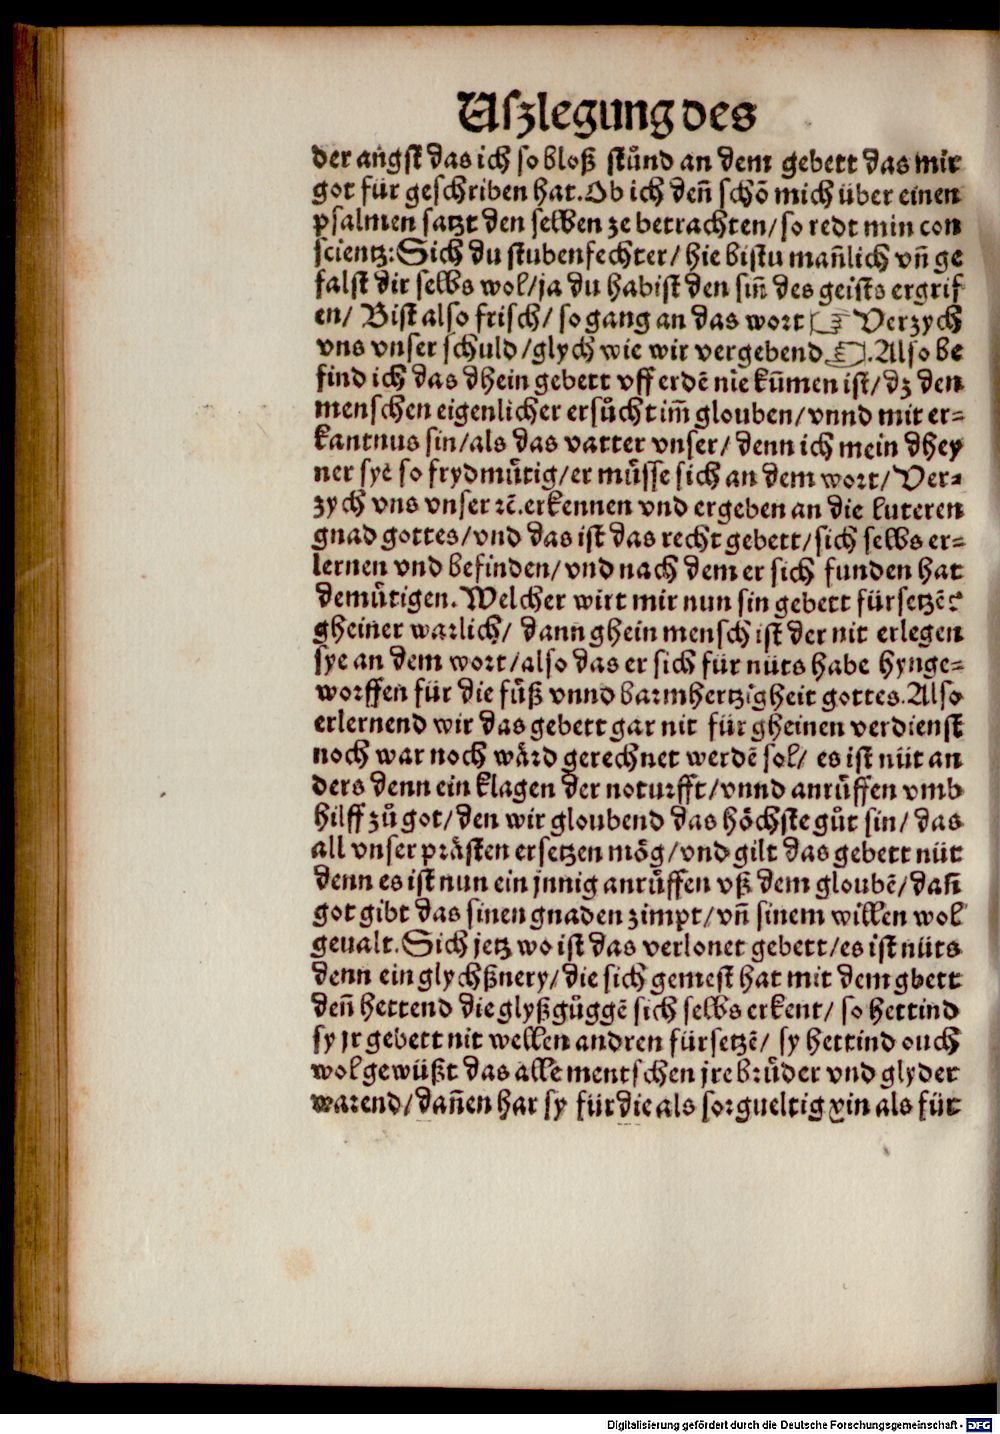 Uſzlegung des
der angst das ich so bloß stůnd an dem gebett das mir
got für geschriben hat. Ob ich deñ schõ mich über einen
psalmen satzt den selben ze betrachten/ so redt min con
scientz: Sich du stubenfechter/ hie bistu mañlich vñ ge
falst dir selbs wol/ ja du habist den siñ des geists ergrif
en/ Bist also frisch/ so gang an das wort ☞ Verzych
vns vnser schuld/ glych wie wir vergebend ☜. Also be
find ich das dhein gebett vff erdẽ nie kũmen ist/ dz den
menschen eigenlicher ersůcht im̃ glouben/ vnnd mit er-
kantnus sin/ als das vatter vnser/ denn ich mein dhey
ner sye so frydmůtig/ er můsse sich an dem wort/ Ver-
zych vns vnser ꝛc̃. erkennen vnd ergeben an die luteren
gnad gottes/ vnd das ist das recht gebett/ sich selbs er-
lernen vnd befinden/ vnd nach dem er sich funden hat
demůtigen. Welcher wirt mir nun sin gebett fürsetzẽ?
gheiner warlich/ dann ghein mensch ist der nit erlegen
sye an dem wort/ also das er sich für nüts habe hynge-
worffen für die fůß vnnd barmhertzigheit gottes. Also
erlernend wir das gebett gar nit für gheinen verdienst
noch war noch wärd gerechnet werdẽ sol/ es ist nüt an
ders denn ein klagen der noturfft/ vnnd anrůffen vmb
hilff zů got/ den wir gloubend das höchste gůt sin/ das
all vnser prästen ersetzen mög/ vnd gilt das gebett nüt
denn es ist nun ein jnnig anrůffen vß dem gloubẽ/ dañ
got gibt das sinen gnaden zimpt/ vñ sinem willen wol
geualt. Sich jetz wo ist das verlonet gebett/ es ist nüts
denn ein glychßnery/ die sich gemest hat mit dem gbett
deñ hettend die glyßgüggẽ sich selbs erkent/ so hettind
sy jr gebett nit wellen andren fürsetzẽ/ sy hettind ouch
wol gewüßt das alle mentschen jre brůder vnd glyder
warend/ dañen har sy für die als sorgueltig xin als für
Digitalisierung gefördert durch die Deutsche Forschungsgemeinschaft - DFG